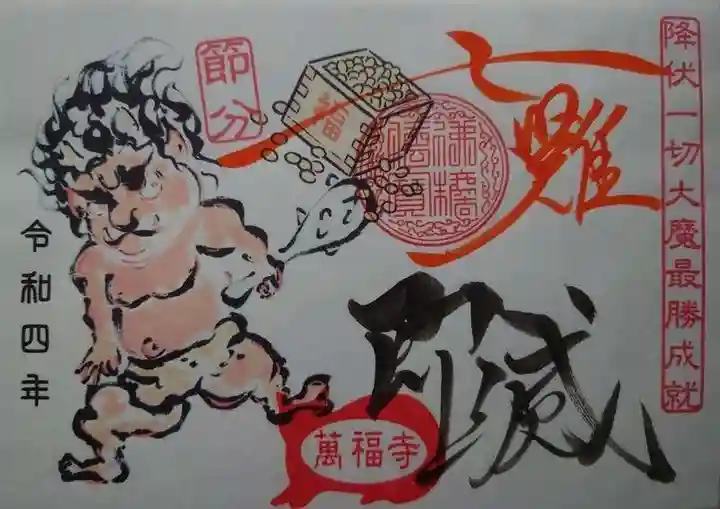 降伏一切大魔最勝成就
七難
即滅
節分
福
萬福寺
令和四年